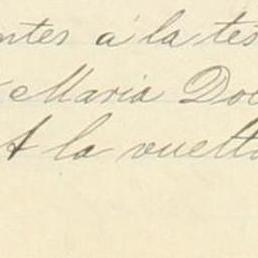 ntes á la tes
Maria Dol
A la vuelta